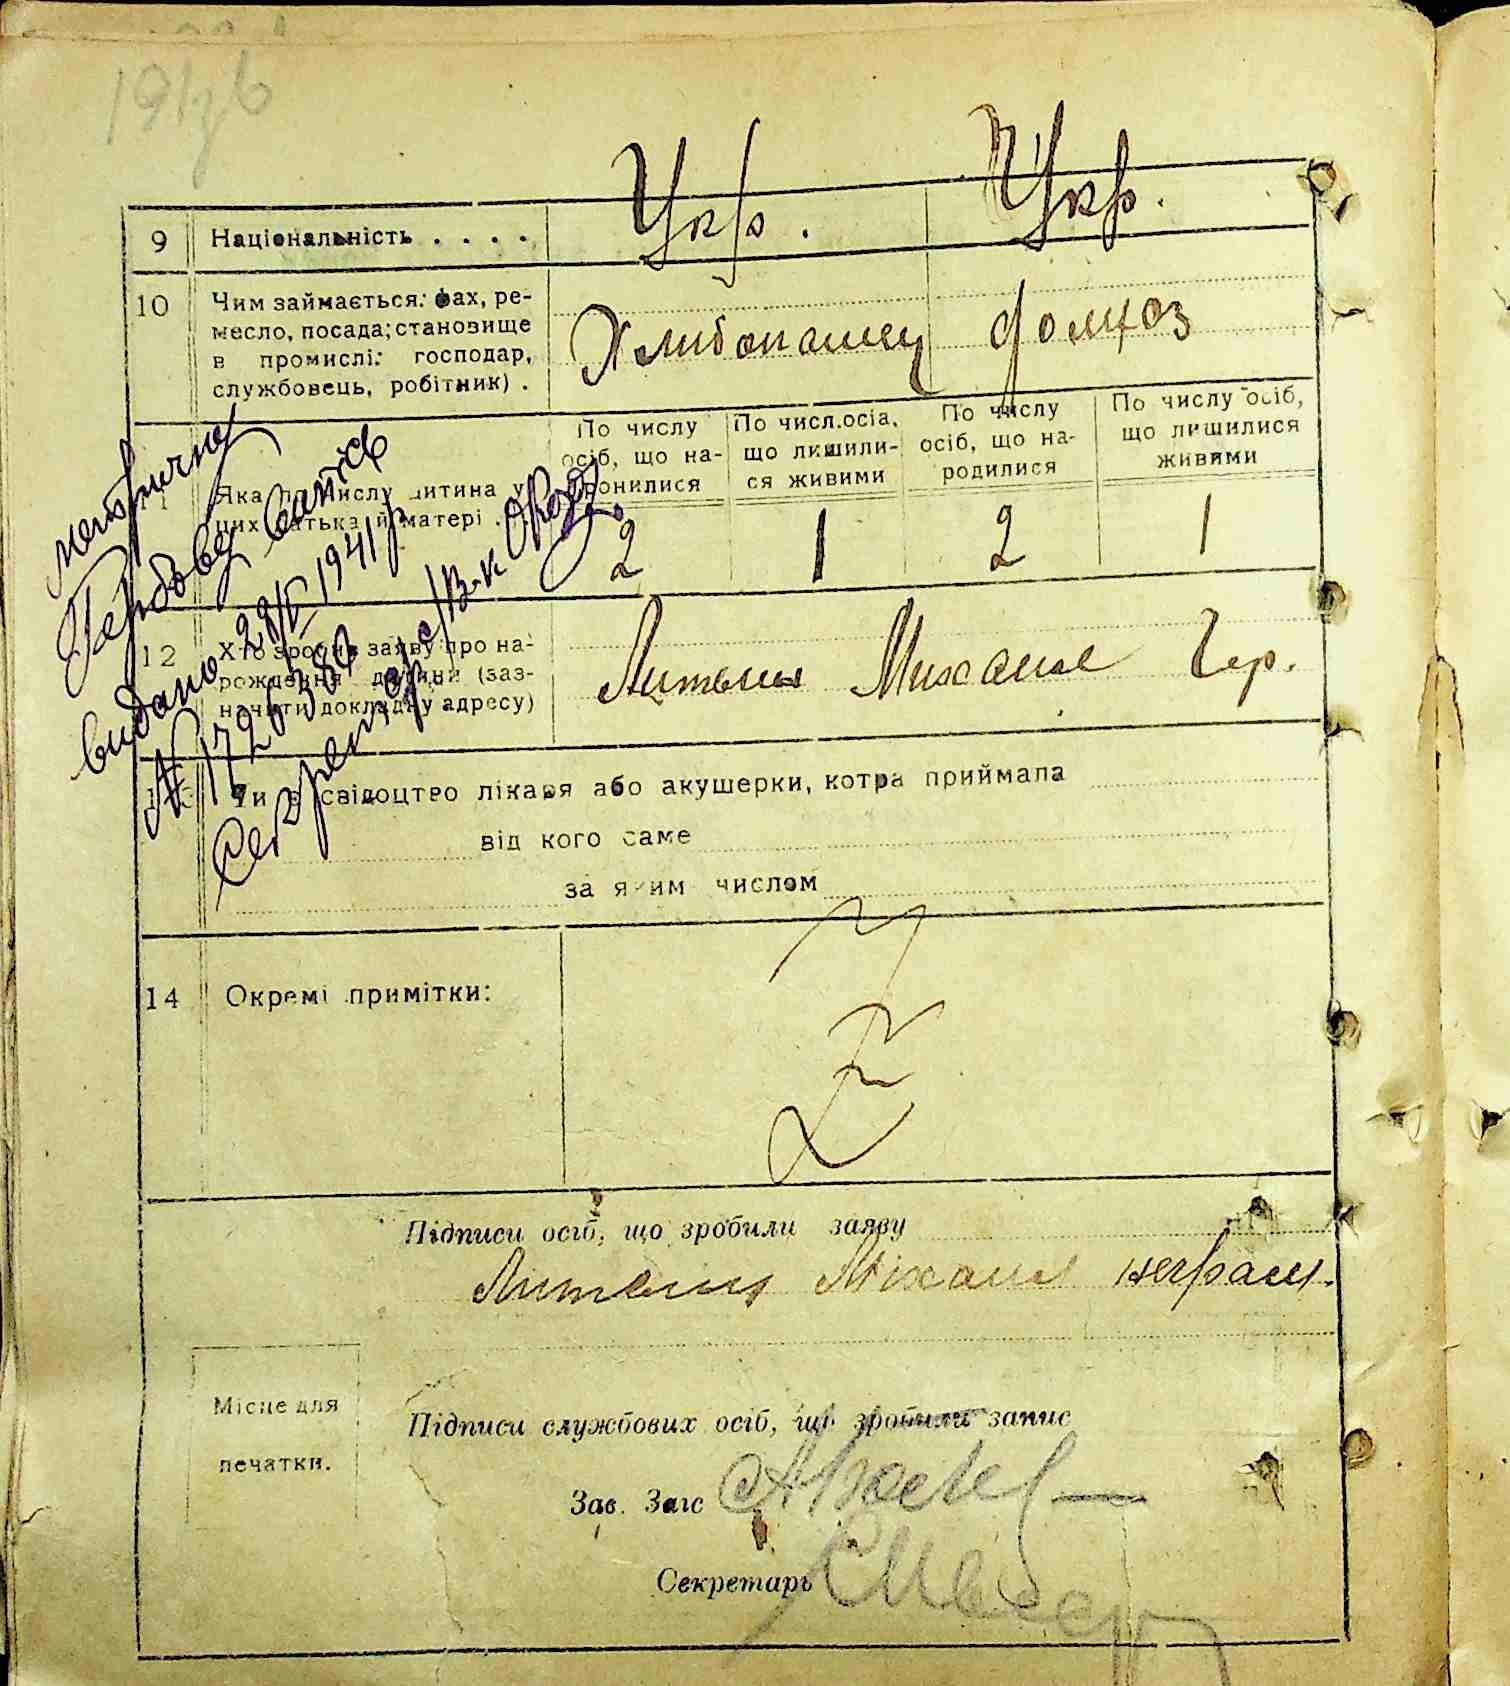 Укр. Укр.
9 Національність . . . .
10 Чим займається: фах, ре-
месло, посада; становище
в промислі: господар,
службовець, робітник) .
Хлибопашец домхоз
По числу осіб, що на- родилися
По числ. осіб, що лишили- ся живими
По числу осіб, що на- родилися
По числу осіб, що лишилися живими
11 Яка по числу дитина у
цих батька й матері .
2 1 2 1
метричне
Гербове
видано 28/V 1941 р
№
Секретар с/в-к
12 Хто зробив заяву про на-
рождення дитини (заз-
начити докладну адресу)
Литвин Михаил Гер.
13 Чи є свідоцтво лікаря або акушерки, котра приймала
від кого саме
за яким числом
14 Окремі примітки:
Z
Підписи осіб, що зробили заяву
Литвин Міхаил неграм.
Місце для
печатки.
Підписи службових осіб, що зробили запис
Зав. Загс
Секретарь